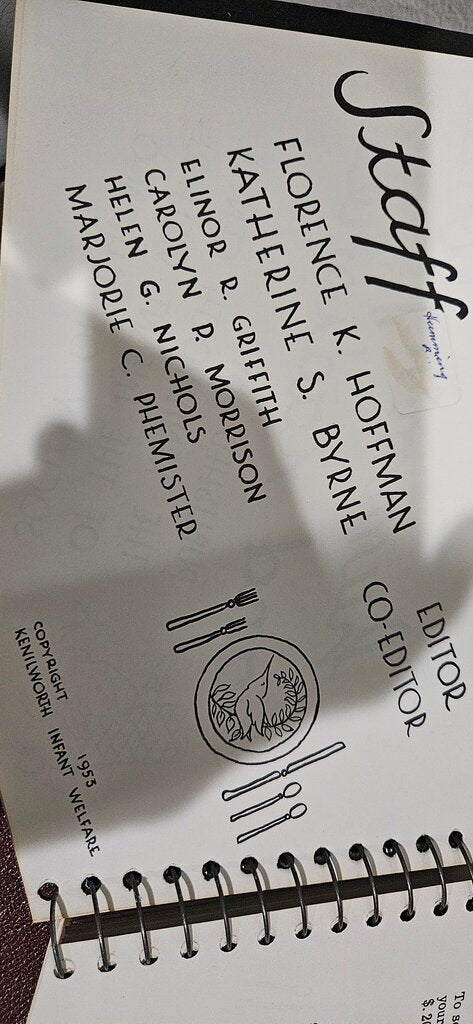 Staff
Humming
FLORENCE K. HOFFMAN EDITOR
KATHERINE S. BYRNE CO-EDITOR
ELINOR R. GRIFFITH
CAROLYN P. MORRISON
HELEN G. NICHOLS
MARJORIE C. PHEMISTER
COPYRIGHT 1953
KENILWORTH INFANT WELFARE
To s
your
$.2